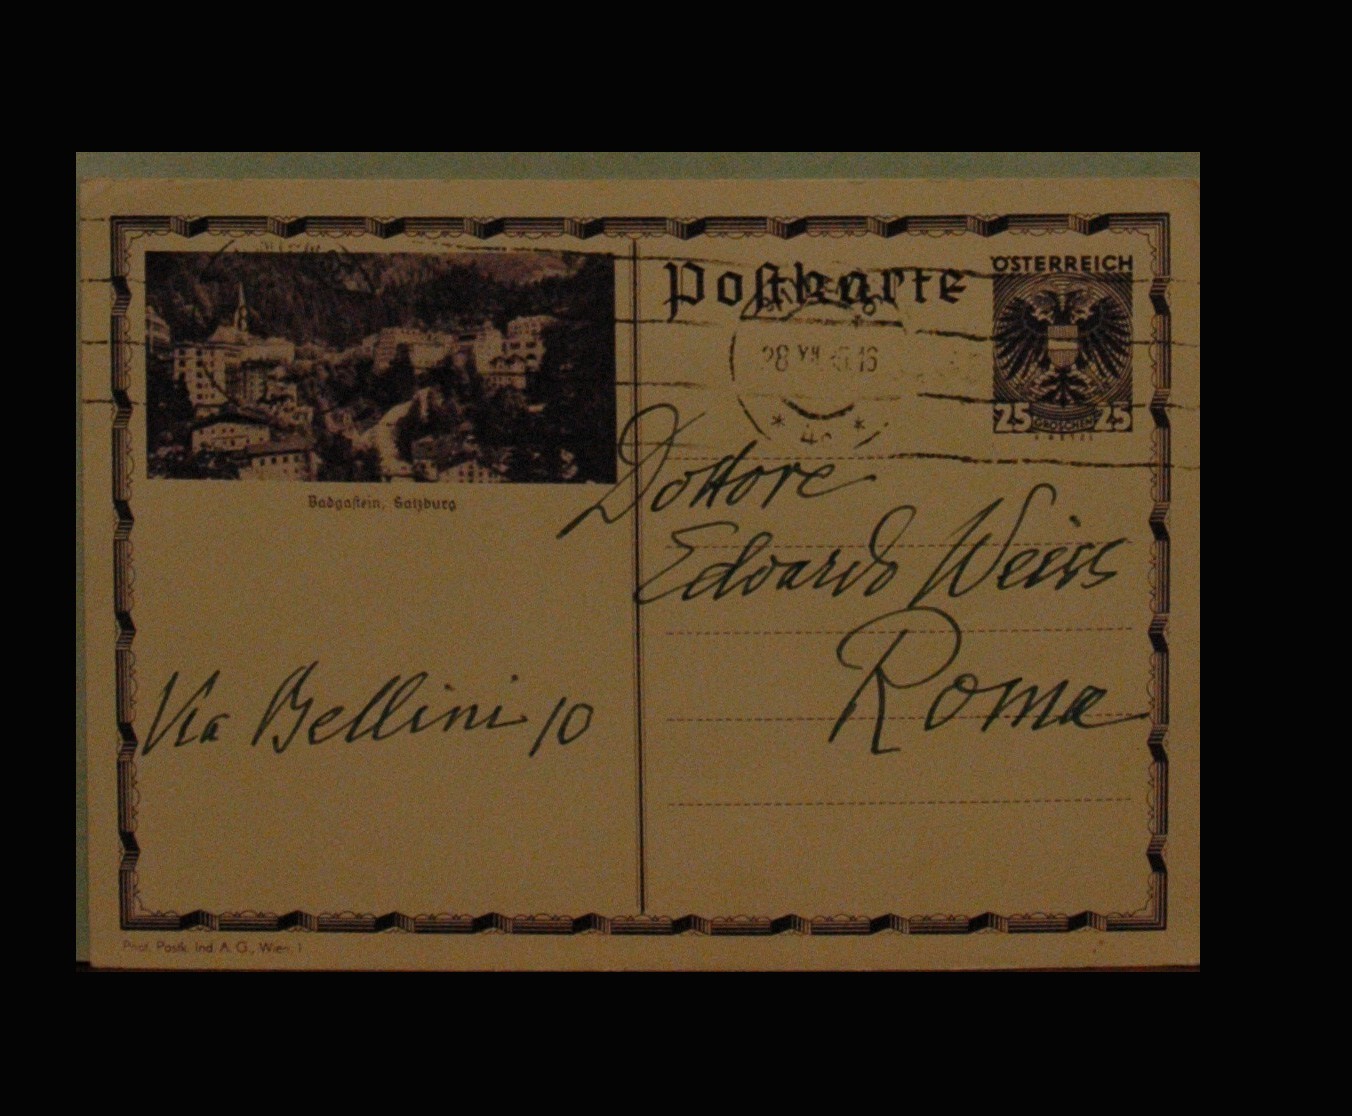 Postkarte
ÖSTERREICH
28 VII 16
25 GROSCHEN 25
Badgastein, Salzburg
Dottore
Edoardo Weiss
Roma
Via Bellini 10
Postk. Ind. A. G., Wien, I